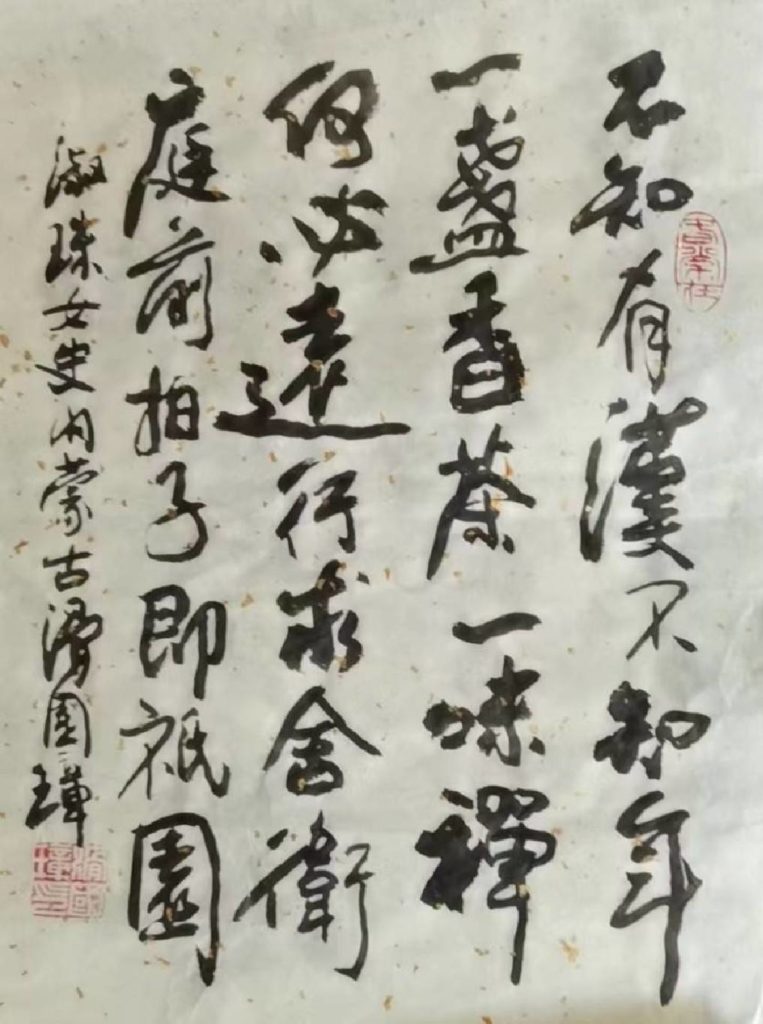 不知有漢不知年
一盞香茶一味禪
何必遠行求舍衛
庭前拍子即祇園
淑珠女史内蒙古潘國璋